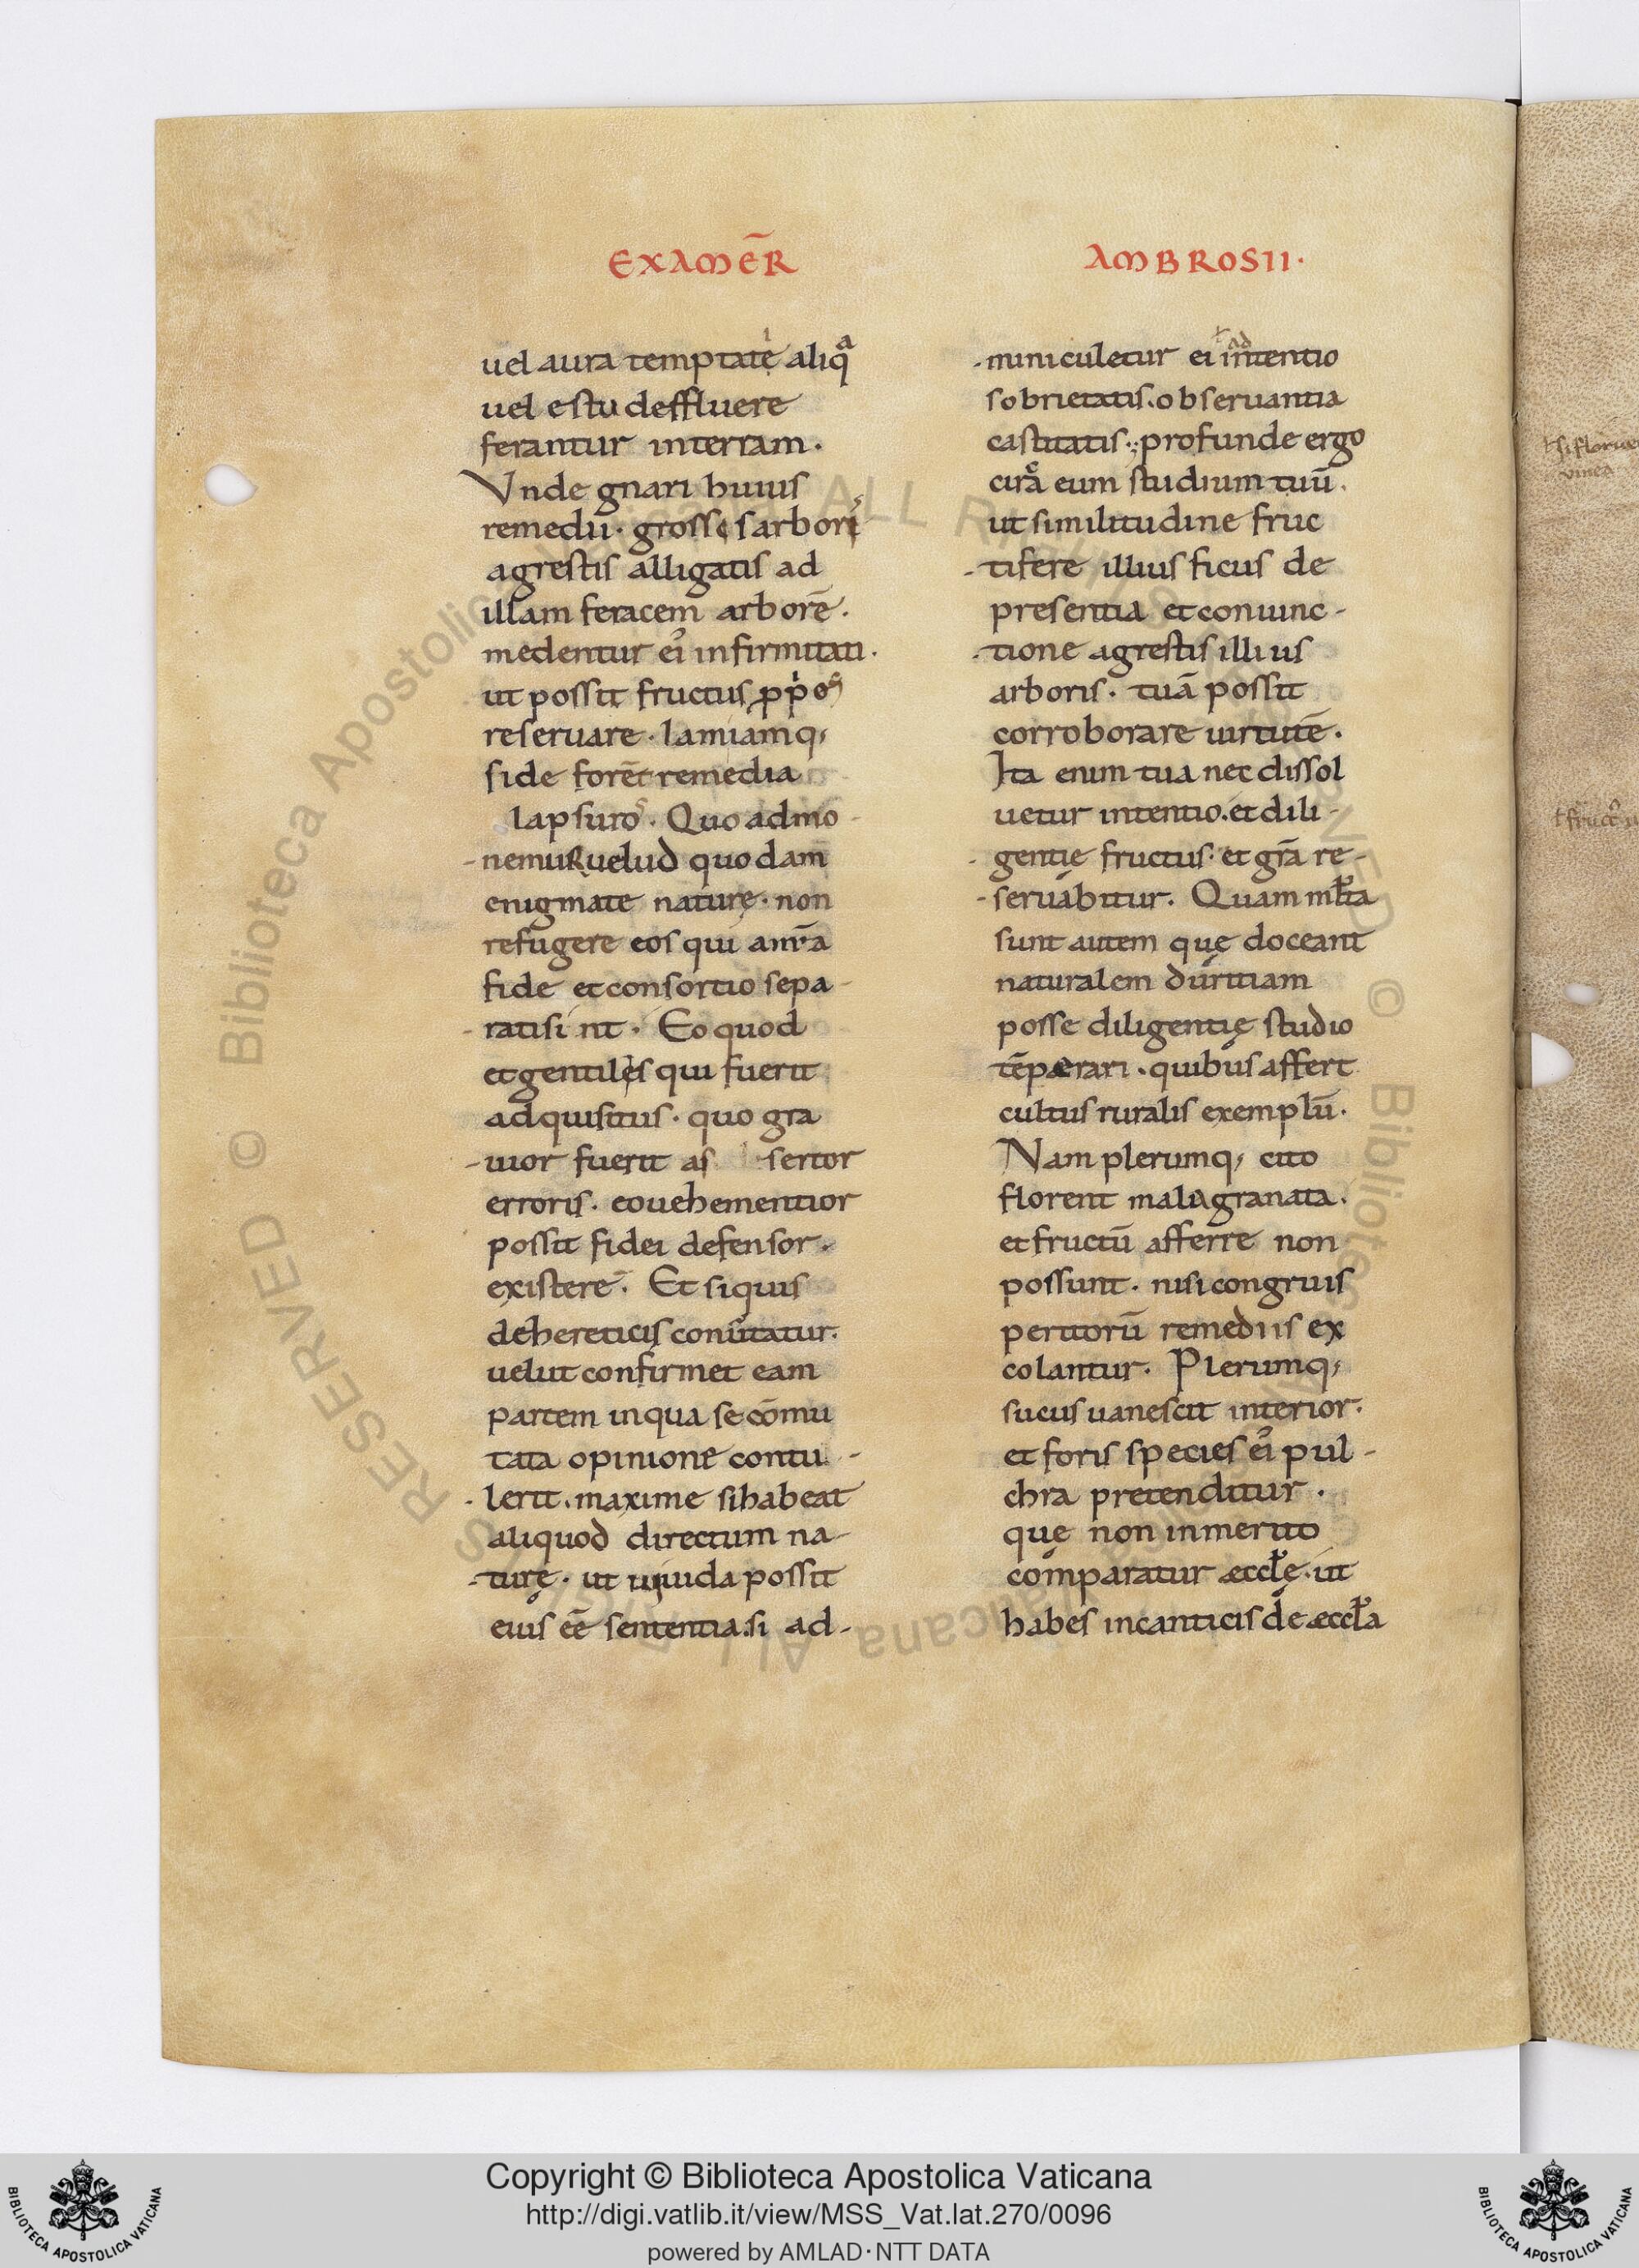 EXAMER̄
uel aura temptate aliq̄
uel estu deffluere
ferantur interram.
Vnde gnari huius
remedii. grossis arbori
agrestis alligatis ad
illam feracem arborē.
medentur ei infirmitati.
ut possit fructus
reseruare. Iamiamq;
side forēt remedia
lapsuros. Quo admo-
-nemur uelud quodam
enigmate naturę. non
refugere eos qui anr̄a
fide et consortio sepa-
-rati sint. Eo quod
et gentiles qui fuerit
adquisitus. quo gra
-uior fuerit as sertor
erroris. eo uehementior
possit fidei defensor.
existere. Et siquis
dehereticis conuertatur.
uelut confirmet eam
partem inqua se cōmu
tata opinione contu-
-lerit. maxime si habeat
aliquod directum na-
-turę. ut uiuida possit
eius eē sententia. si ad-
AMBROSII.
-miniculetur ei intentio
ad
sobrietatis. obseruantia
castitatis. profunde ergo
circa eum studium tuū.
ut similitudine fruc
-tifere illius ficus de
presentia et coniunc-
-tione agrestis illius
arboris. tuā possit
corroborare uirtutē.
Ita enim tua nec dissol
uetur intentio. et dili-
gentię fructus. et gr̄a re-
-seruabitur. Quam ml̄ta
sunt autem quę doceant
naturalem duritiam
posse diligentię studio
tēperari. quibus affert
cultus ruralis exemplū.
Nam plerumq; cito
florent malagranata.
et fructū afferre non
possunt. nisi congruis
peritorū remediis ex
colantur. Plerumq;
sucus uanescit interior.
et foris species ei pul-
chra pretenditur.
quę non inmerito
comparatur æccl̄ę. ut
habes incanticis de æccl̄a
Copyright © Biblioteca Apostolica Vaticana
http://digi.vatlib.it/view/MSS_Vat.lat.270/0096
powered by AMLAD·NTT DATA
BIBLIOTECA APOSTOLICA VATICANA
BIBLIOTECA APOSTOLICA VATICANA